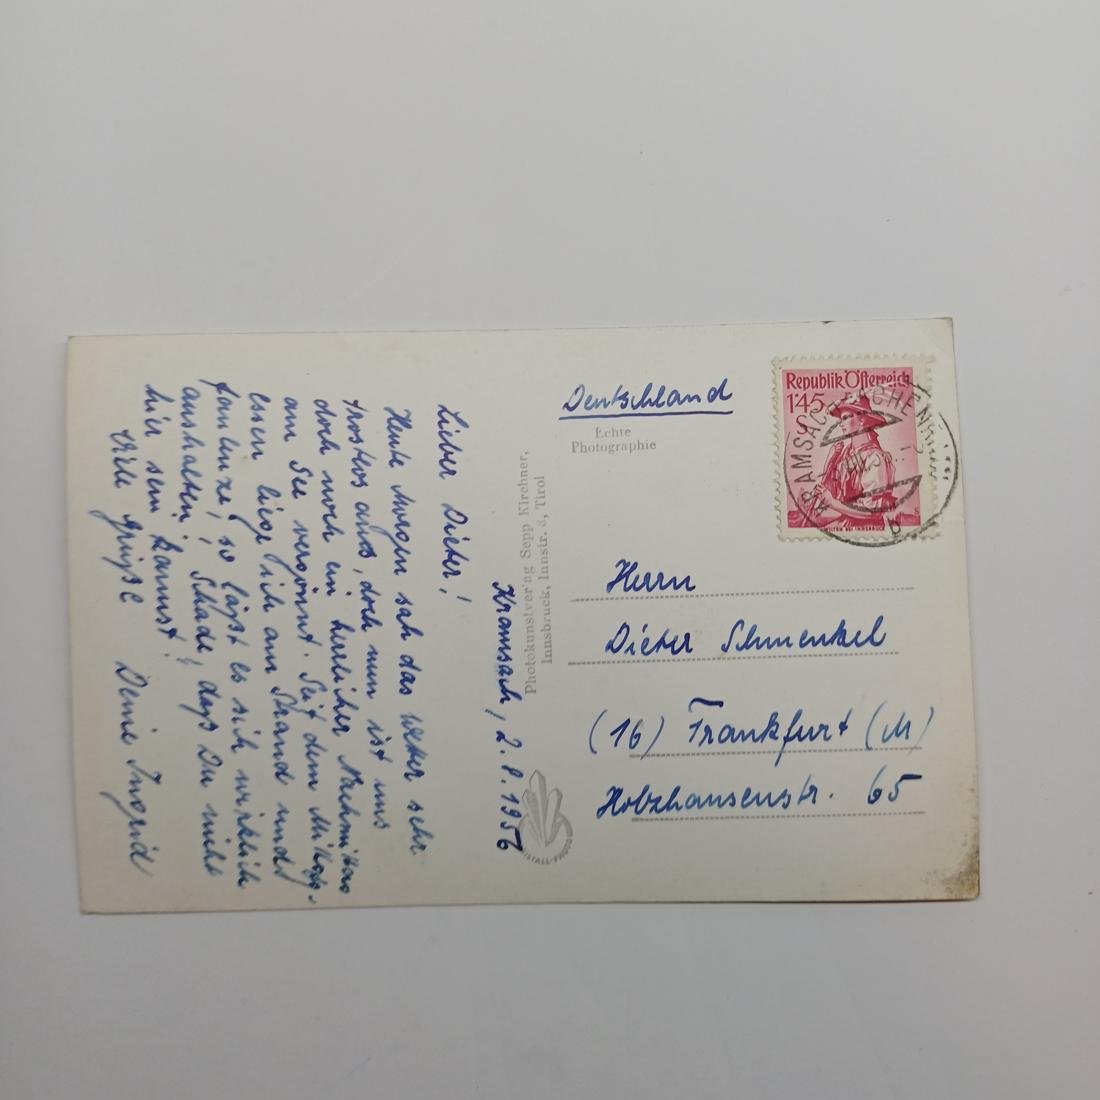 Kramsach, 2.8.1956
Lieber Dieter!
Heute Morgen sah das Wetter sehr
trostlos aus, doch nun ist uns
doch noch ein herrlicher Nachmittag
am See vergönnt. Seit dem Mittag-
essen liege ich am Strand und
faulenze, so lässt es sich wirklich
aushalten! Schade, dass Du nicht
hier sein kannst!
Viele Grüße Deine Ingrid
Photokunstverlag Sepp Kirchner,
Innsbruck, Innstr. 3, Tirol
KRISTALL-PHOTO
Deutschland
Echte
Photographie
Republik Österreich
1'45
WILTEN BEI INNSBRUCK
KRAMSACH-ACHENRAIN
b
Herrn
Dieter Schmenkel
(16) Frankfurt (M)
Holzhausenstr. 65